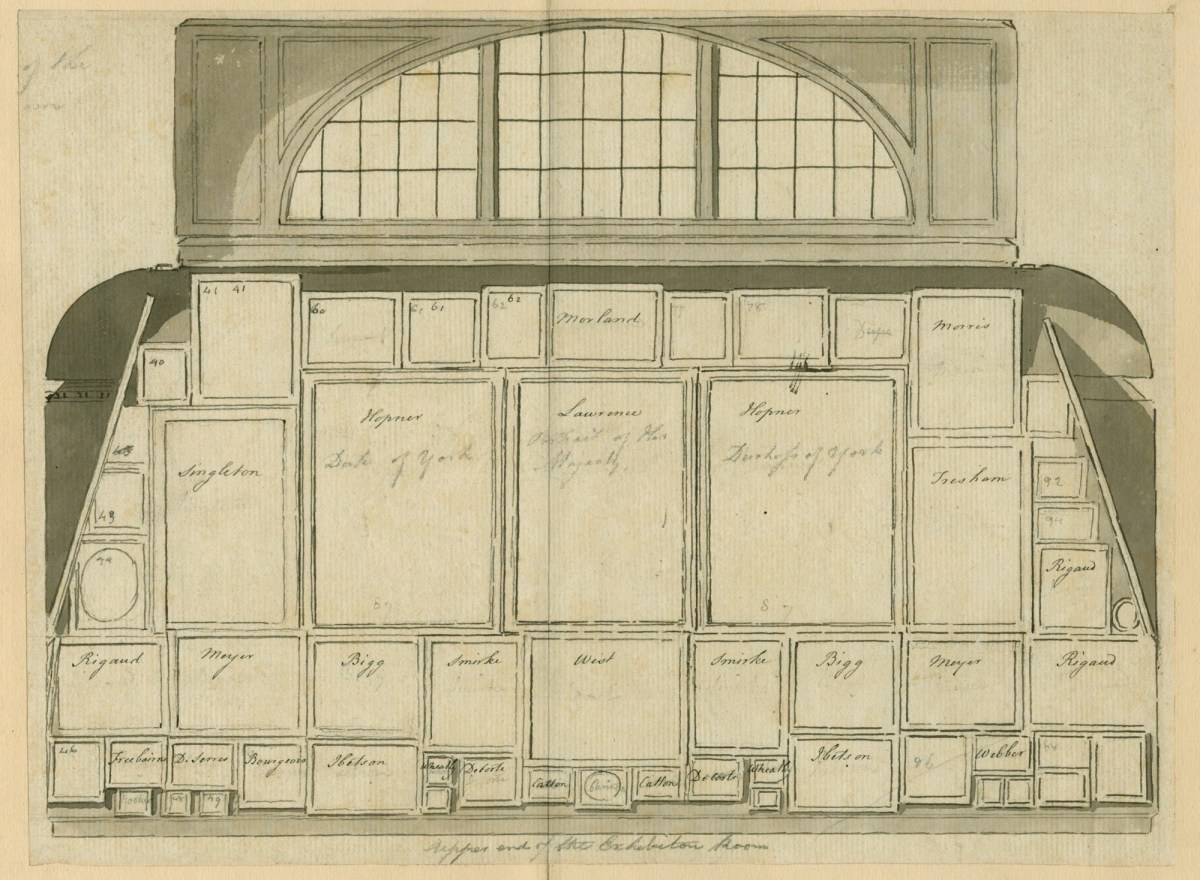 of the
41 41
60
61 61
62 62
Morland
77
78
Morris
40
Hopner
Duke of York
Lawrence
Portrait of Her
Majesty
Hopner
Duchess of York
Singleton
Tresham
43
44
92
94
Rigaud
Rigaud
Meyer
Bigg
Smirke
West
Smirke
Bigg
Meyer
Rigaud
46
Freebairn
D. Serres
Bourgeois
Ibetson
Wheatly
Detorte
Catton
Catton
Detorte
Wheatly
Ibetson
96
Webber
49
Upper end of the Exhibition Room